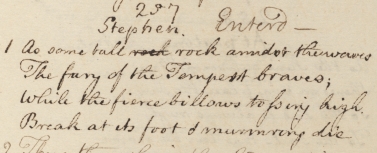 237
Stephen. Enterd —
1 As some tall rock rock amidst the waves
The fury of the Tempest braves;
While the fierce billows tossing high
Break at its foot & murmring die
2